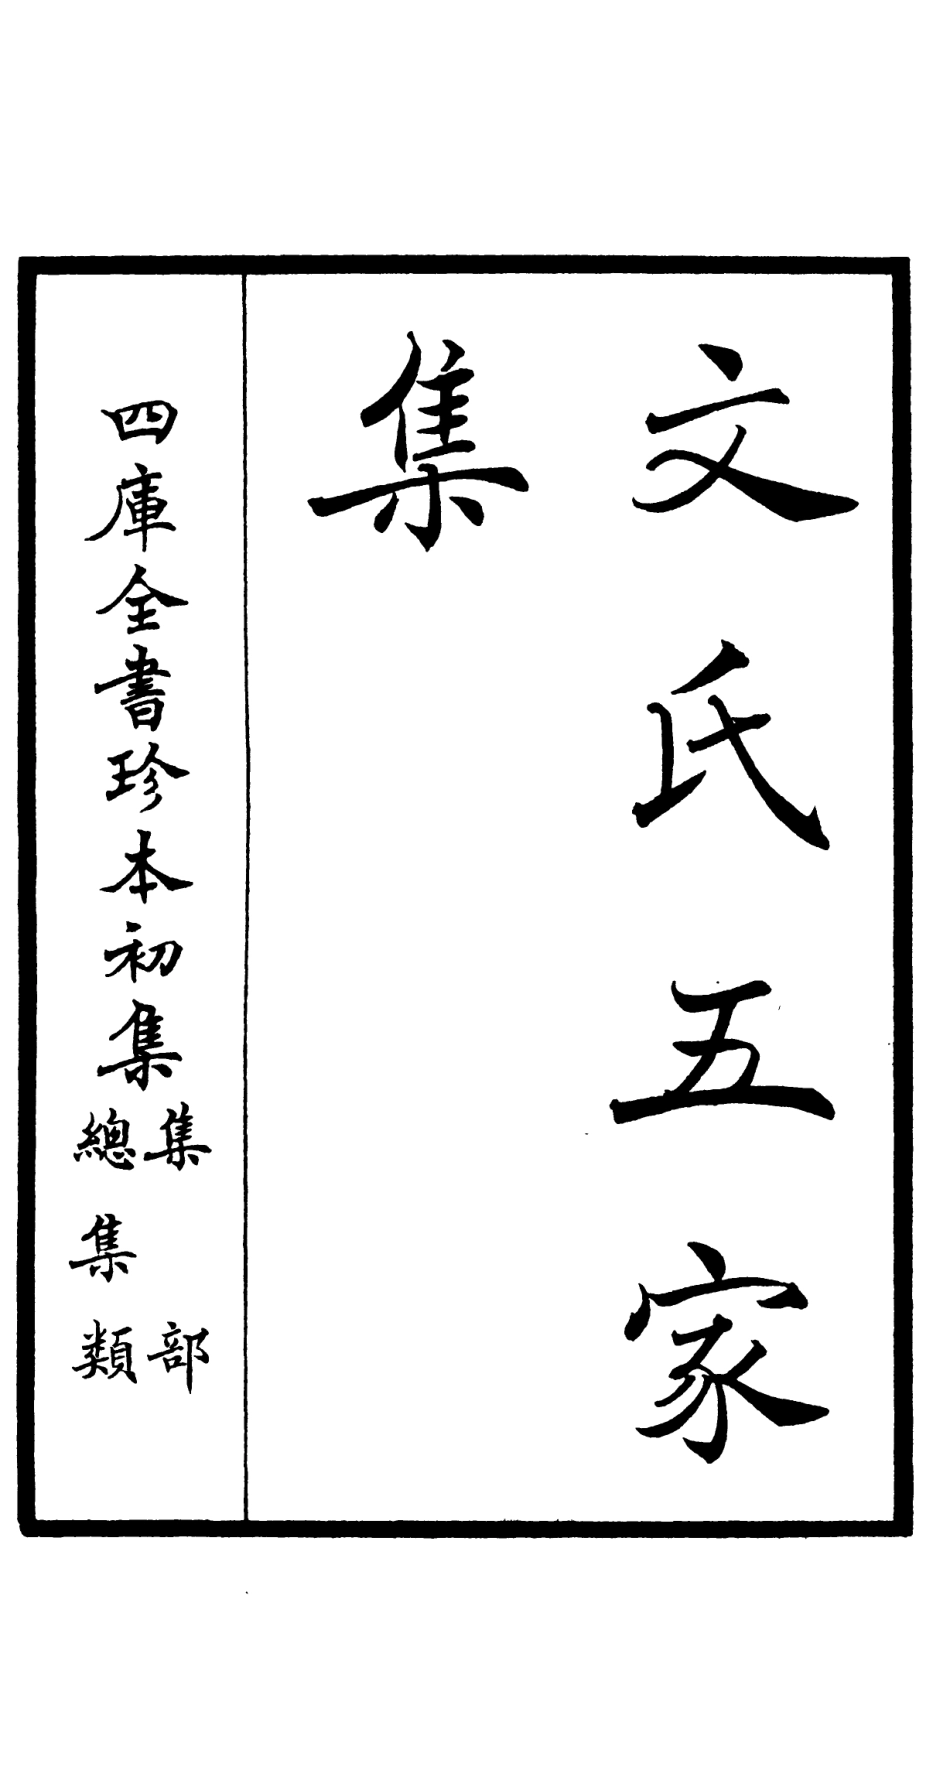 文氏五家
集
四庫全書珍本初集
集部
總集類